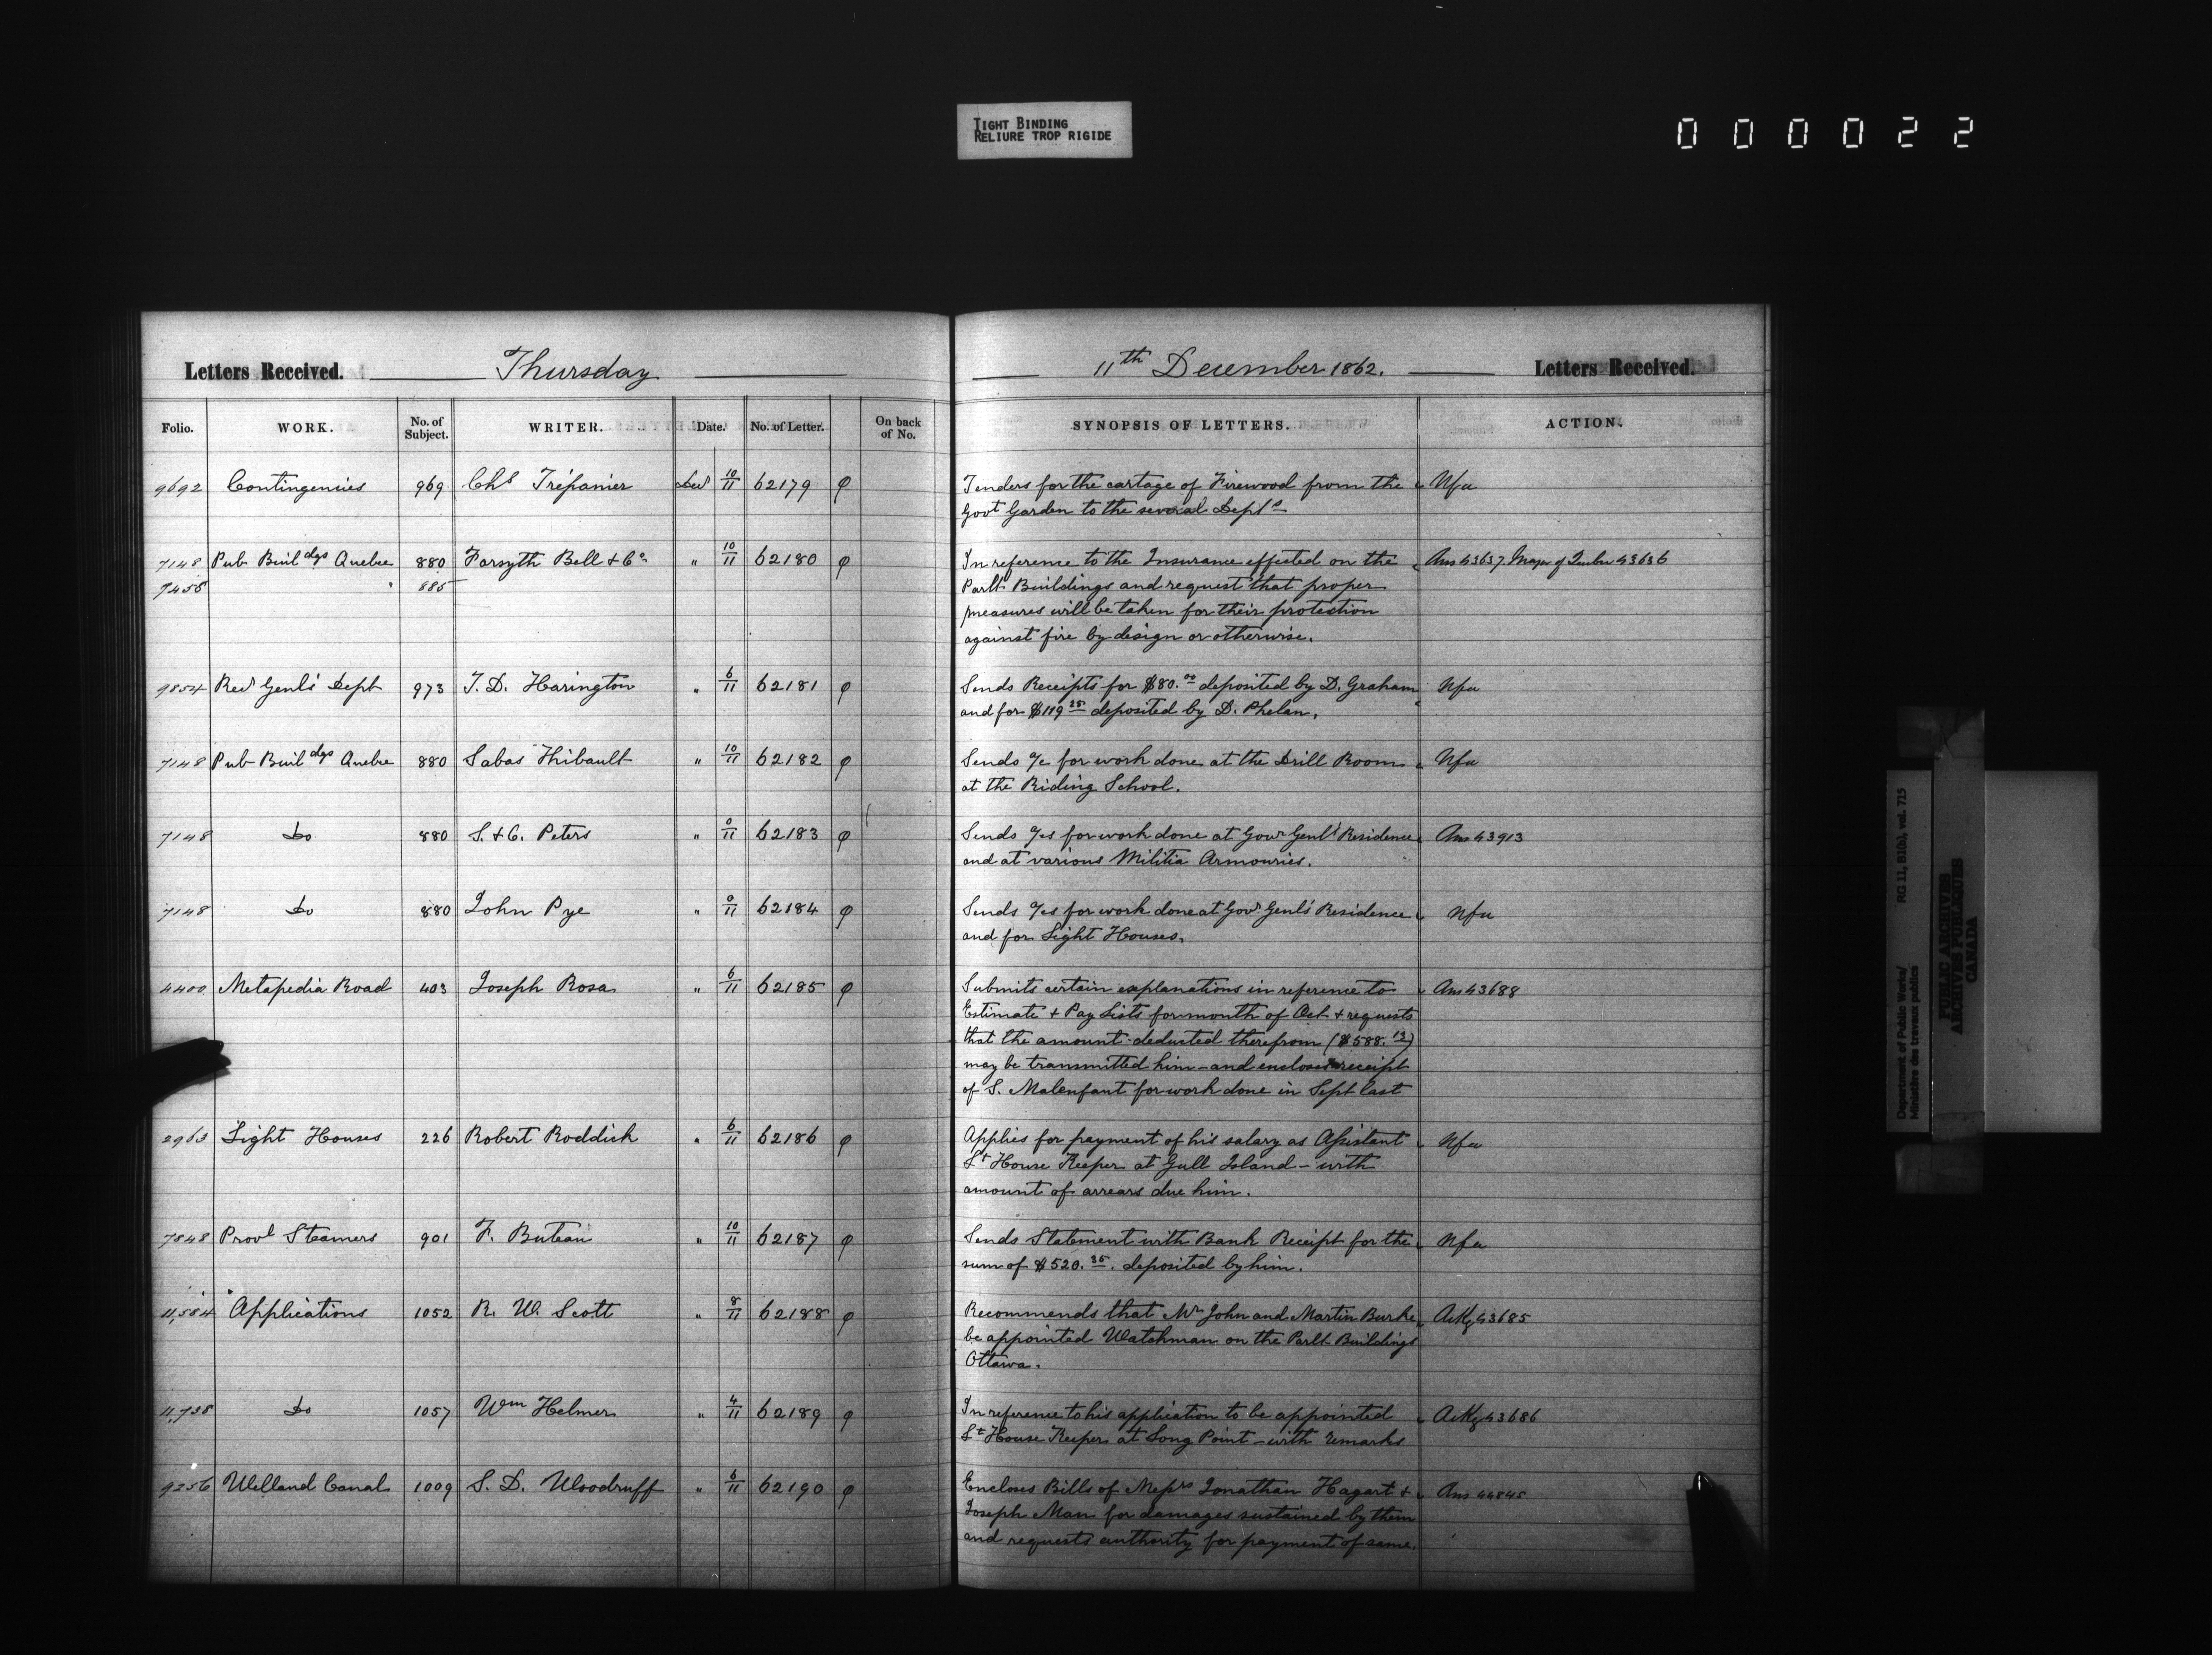 TIGHT BINDING
RELIURE TROP RIGIDE
000022
Letters Received. Thursday
11th December 1862. Letters Received.
Folio. WORK. No. of Subject. WRITER. Date. No. of Letter. On back of No. SYNOPSIS OF LETTERS. ACTION.
9692 Contingencies 969 Chs Trépanier Decr 10/11 62179 Tenders for the cartage of Firewood from the Nfa
Govt Garden to the several Depts
7148 Pub Buildgs Quebec 880 Forsyth Bell & Co " 10/11 62180 In reference to the Insurance effected on the Ans 43637. Mayor of Quebec 43636
7458 " 885 Parlt Buildings and request that proper
measures will be taken for their protection
against fire by design or otherwise.
9854 Recr Genl's Dept 973 T. D. Harington " 6/11 62181 Sends Receipts for $80.00 deposited by D. Graham Nfa
and for $119 25 deposited by D. Phelan.
7148 Pub Buildgs Quebec 880 Sabas Thibault " 10/11 62182 Sends a/c for work done at the Drill Room Nfa
at the Riding School.
7148 Do 880 S. & C. Peters " 0/11 62183 Sends a/cs for work done at Govr Genl's Residence Ans 43913
and at various Militia Armouries.
7148 Do 880 John Pye " 0/11 62184 Sends a/cs for work done at Govr Genl's Residence Nfa
and for Light Houses.
4400 Metapedia Road 403 Joseph Rosa " 6/11 62185 Submits certain explanations in reference to Ans 43688
Estimate & Pay Lists for month of Oct & requests
that the amount deducted therefrom ($588.13)
may be transmitted him - and encloses receipt
of S. Malenfant for work done in Sept last
2963 Light Houses 226 Robert Roddick " 6/11 62186 Applies for payment of his salary as Assistant Nfa
Lt House Keeper at Gull Island - with
amount of arrears due him.
7848 Provl Steamers 901 F. Buteau " 10/11 62187 Sends Statement with Bank Receipt for the Nfa
sum of $520.35. deposited by him.
11,584 Applications 1052 R. W. Scott " 8/11 62188 Recommends that Mr John and Martin Burke Ackg 43685
be appointed Watchman on the Parlt Buildings
Ottawa.
11,738 Do 1057 Wm Helmer " 4/11 62189 In reference to his application to be appointed Ackg 43686
Lt House Keeper at Long Point - with remarks
9256 Welland Canal 1009 S. D. Woodruff " 6/11 62190 Encloses Bills of Messrs Jonathan Hagart & Ans 44845
Joseph Man for damages sustained by them
and requests authority for payment of same.
Department of Public Works/ RG 11, B1(a), vol. 715
Ministère des travaux publics
PUBLIC ARCHIVES
ARCHIVES PUBLIQUES
CANADA